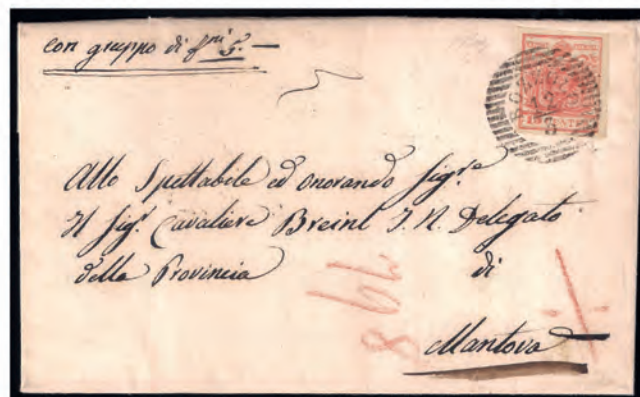 con gruppo di f.ni 5.—
15 CENTES
Allo Spettabile ed onorando Sig.re
Il Sig.r Cavaliere Breinl I. R. Delegato
della Provincia di
Mantova